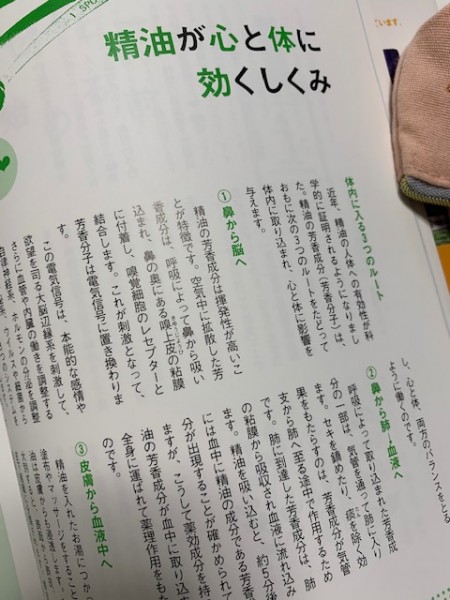 1 SPO
います。
精油が心と体に
効くしくみ
体内に入る3つのルート
近年、精油の人体への有効性が科
学的に証明されるようになりまし
た。精油の芳香成分（芳香分子）は、
おもに次の3つのルートをたどって
体内に取り込まれ、心と体に影響を
与えます。
① 鼻から脳へ
精油の芳香成分は揮発性が高いこ
とが特徴です。空気中に拡散した芳
香成分は、呼吸によって鼻から吸い
込まれ、鼻の奥にある嗅上皮の粘膜
に付着し、嗅覚細胞のレセプターと
結合します。これが刺激となって、
芳香分子は電気信号に置き換わりま
す。
この電気信号は、本能的な感情や
欲望を司る大脳辺縁系を刺激して、
さらに血管や内臓の働きを調整する
自律神経系、ホルモンの分泌を調整
し、心と体、両方のバランスをとる
ように働くのです。
② 鼻から肺→血液へ
呼吸によって取り込まれた芳香成
分の一部は、気管を通って肺に入り
ます。セキを鎮めたり、痰を除く効
果をもたらすのは、芳香成分が気管
支から肺へ至る途中で作用するため
です。肺に到達した芳香成分は、肺
の粘膜から吸収され血液に流れ込み
ます。精油を吸い込むと、約5分後
には血中に精油の成分である芳香
分が出現することが確かめられて
ますが、こうして薬効成分を持
油の芳香成分が血中に取り込ま
全身に運ばれて薬理作用をもた
のです。
③ 皮膚から血液中へ
精油を入れたお湯につかっ
塗布やマッサージをすること
油は皮膚からも浸透します